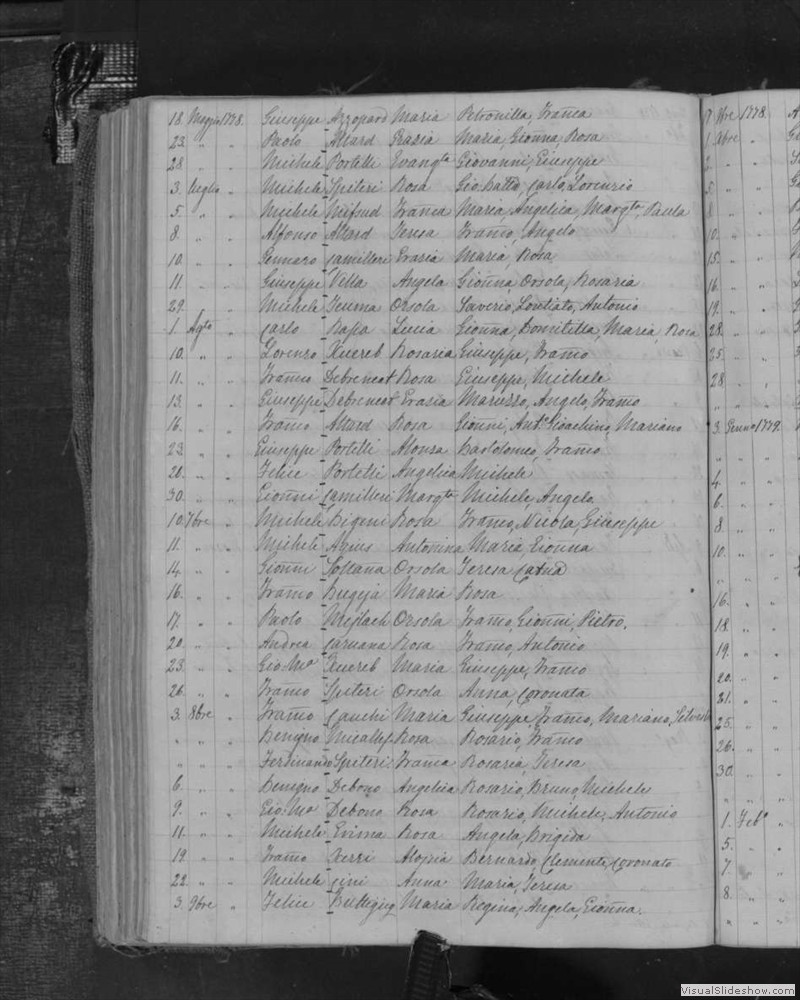 18. Maggio 1778. Giuseppe Azzopard Maria Petronilla, Fran̄ca
23. " " Paolo Attard Grazia Maria, Gionna, Rosa
28 " " Michele Portelli Evangta Giovanni, Giuseppe
3. luglio " Michele Spiteri Rosa Gio batta, Carlo, Lorenzio
5. " " Michele Mifsud Fran̄ca Maria, Angelica, Margta, Paula
8. " " Alfonso Attard Teresa Fran̄co, Angelo
10. " " Gennaro Camilleri Grazia Maria, Rosa
11. " " Giuseppe Vella Angela Gion̄na, Orsola, Rosaria
29. " " Michele Teuma Orsola Saverio, Antonio
1. Agto " Carlo Rapa Lucia Gionna, Domitilla, Maria, Rosa
10. " " Lorenzo Xuereb Rosaria Giuseppe, Fran̄co
11. " " Fran̄co Debrencat Rosa Giuseppe, Michele
13. " " Giuseppe Debrencat Grazia Maruzzo, Angelo, Fran̄co
16. " " Fran̄co Attard Rosa Gionni, Anto Gioachino, Mariano
23. " " Giuseppe Portelli Alonza Bartolomeo, Fran̄co
20. " " Felice Portelli Angelica Michele
30. " " Gion̄ni Camilleri Margta Michele, Angelo
10. 7bre " Michele Bigeni Rosa Fran̄co, Nicola, Giuseppe
11. " " Michele Agius Antonina Maria, Gion̄na
14. " " Gion̄ni Soltana Orsola Teresa
16. " " Fran̄co Bugeja Maria Rosa
17. " " Paolo Mejlach Orsola Fran̄co, Gion̄ni, Pietro.
20. " " Andrea Caruana Rosa Fran̄co, Antonio
23. " " Gio: Ma Xuereb Maria Giuseppe, Fran̄co
26. " " Fran̄co Spiteri Orsola Anna, Coronata
3. 8bre " Fran̄co Cauchi Maria Giuseppe, Fran̄co, Mariano,
" " " Benigno Micallef Rosa Rosario, Fran̄co
" " " Ferdinando Spiteri Fran̄ca Rosaria, Teresa
6. " " Benigno Debono Angelica Rosario, Bruno, Michele
9. " " Gio: Ma Debono Rosa Rosario, Michele, Antonio
11. " " Michele Grima Rosa Angela, Brigida
19. " " Fran̄co Xerri Aloisia Bernardo, Clemente, Coronato
22. " " Michele Cini Anna Maria, Teresa
3. 9bre " Felice Buttigieg Maria Regina, Angela, Gion̄na.
9bre 1778.
1. Xbre "
2. " "
5. " "
8. " "
10. " "
15. " "
16. " "
19. " "
28. " "
25. " "
28. " "
" " "
3. Genno 1779.
" " "
4. " "
6. " "
8. " "
10. " "
" " "
16. " "
18. " "
19. " "
20. " "
21. " "
25. " "
26. " "
30. " "
" " "
1. Febo "
5. " "
7. " "
8. " "
" " "
VisualSlideshow.com